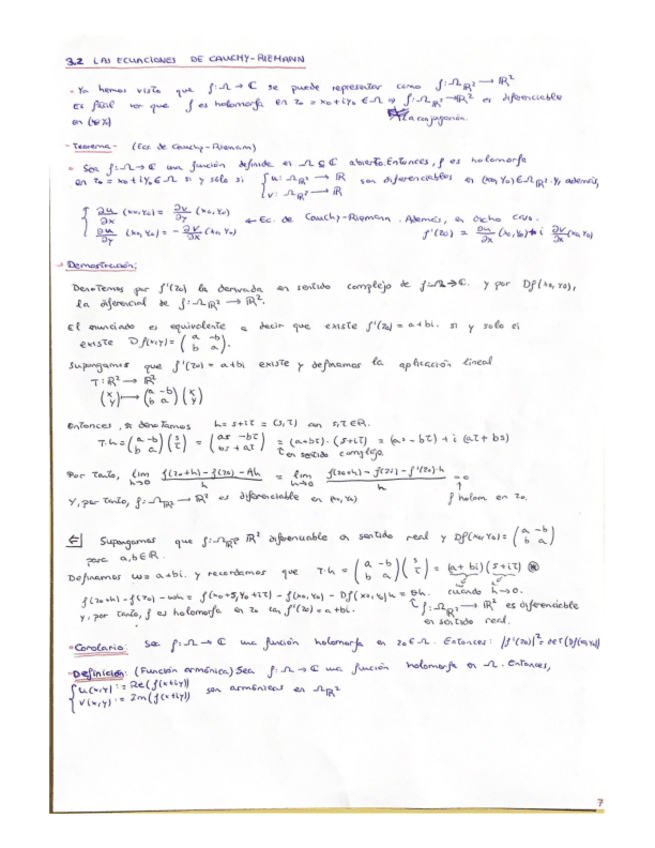 3.2 LAS ECUACIONES DE CAUCHY-RIEMANN
- Ya hemos visto que f: Ω → ℂ se puede representar como f: Ω_ℝ² → ℝ²
Es fácil ver que f es holomorfa en z₀ = x₀+iy₀ ∈ Ω ⇒ f: Ω_ℝ² → ℝ² es diferenciable
en (x₀,y₀) La conjugación.
- Teorema - (Ecs. de Cauchy-Riemann)
• Sea f: Ω → ℂ una función definida en Ω ⊆ ℂ abierto. Entonces, f es holomorfa
en z₀ = x₀+iy₀ ∈ Ω si y solo si { u: Ω_ℝ² → ℝ v: Ω_ℝ² → ℝ son diferenciables en (x₀,y₀) ∈ Ω_ℝ². Y, además,
{ ∂u/∂x (x₀,y₀) = ∂v/∂y (x₀,y₀)
∂u/∂y (x₀,y₀) = - ∂v/∂x (x₀,y₀) ← Ec. de Cauchy-Riemann. Además, en dicho caso.
f'(z₀) = ∂u/∂x (x₀,y₀) + i ∂v/∂x (x₀,y₀)
- Demostración:
Denotemos por f'(z₀) la derivada en sentido complejo de f: Ω → ℂ. y por Df(x₀,y₀),
la diferencial de f: Ω_ℝ² → ℝ².
El enunciado es equivalente a decir que existe f'(z₀) = a+bi. si y solo si
existe Df(x,y) = (a -b; b a).
Supongamos que f'(z₀) = a+bi existe y definamos la aplicación lineal
T: ℝ² → ℝ²
(x; y) ↦ (a -b; b a)(x; y)
Entonces, si denotamos h = s+iτ = (s,τ) con s,τ ∈ ℝ.
T·h = (a -b; b a)(s; τ) = (as -bτ; bs + aτ) = (a+bi)·(s+iτ) = (as - bτ) + i(aτ + bs)
en sentido complejo.
Por tanto, lim h→0 (f(z₀+h) - f(z₀) - Ah)/h = lim h→0 (f(z₀+h) - f(z₀) - f'(z₀)·h)/h = 0
Y, por tanto, f: Ω_ℝ² → ℝ² es diferenciable en (x₀,y₀) f holom. en z₀.
⇐ Supongamos que f: Ω_ℝ² ℝ² diferenciable en sentido real y Df(x₀,y₀) = (a -b; b a)
para a,b ∈ ℝ.
Definamos ω = a+bi. y recordamos que T·h = (a -b; b a)(s; τ) = (a+bi)(s+iτ) ⊛
f(z₀+h) - f(z₀) - ωh = f(x₀+s, y₀+iτ) - f(x₀,y₀) - Df(x₀,y₀)h = 0h. cuando h→0.
y, por tanto, f es holomorfa en z₀ con f'(z₀) = a+bi. f: Ω_ℝ² → ℝ² es diferenciable
en sentido real.
• Corolario: Sea f: Ω → ℂ una función holomorfa en z₀ ∈ Ω. Entonces: |f'(z₀)|² = det(Df(x₀,y₀))
• Definición: (Función armónica) Sea f: Ω → ℂ una función holomorfa en Ω. Entonces,
{ u(x,y) := Re(f(x+iy))
v(x,y) := Im(f(x+iy)) son armónicas en Ω_ℝ²
7